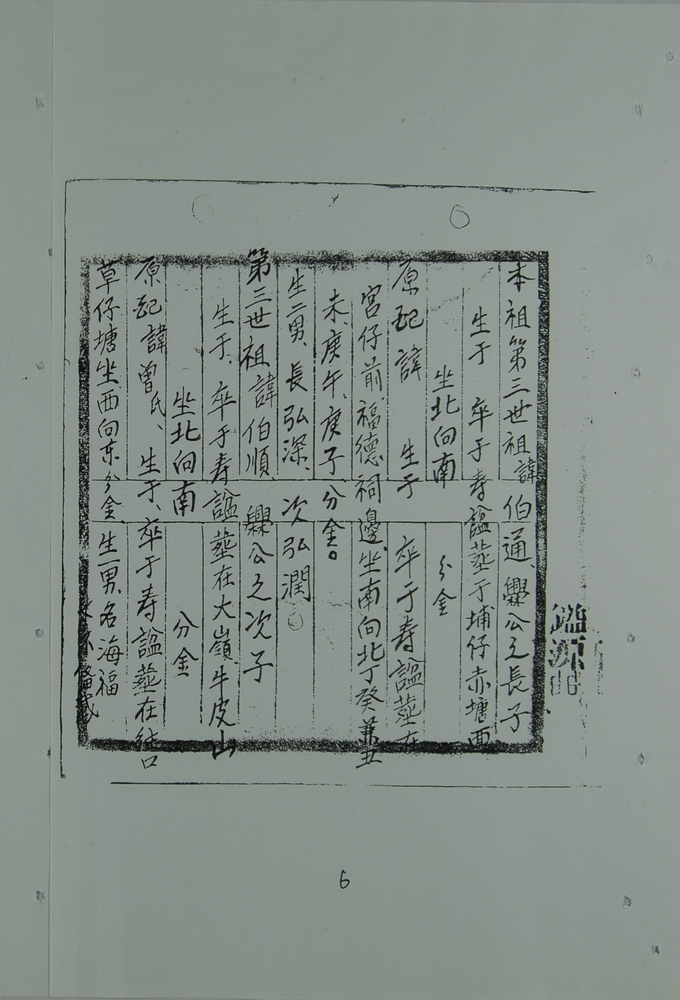 本祖第三世祖諱伯通、㸑公之長子
生于　卒于　寿　諡　塟于埔仔赤塘面
坐北向南　分金
原配諱　生于　卒于　寿　諡　塟在
宮仔前福德祠邊坐南向北丁癸兼丑
未、庚午、庚子分金。
生二男、長弘深、次弘潤
第三世祖諱伯順、㸑公之次子
生于、卒于　寿　諡　塟在大嶺牛皮山
坐北向南　分金
原配諱曾氏、生于、卒于　寿　諡　塟在結口
草仔塘坐西向东分金、生一男、名海福
鑑源
6